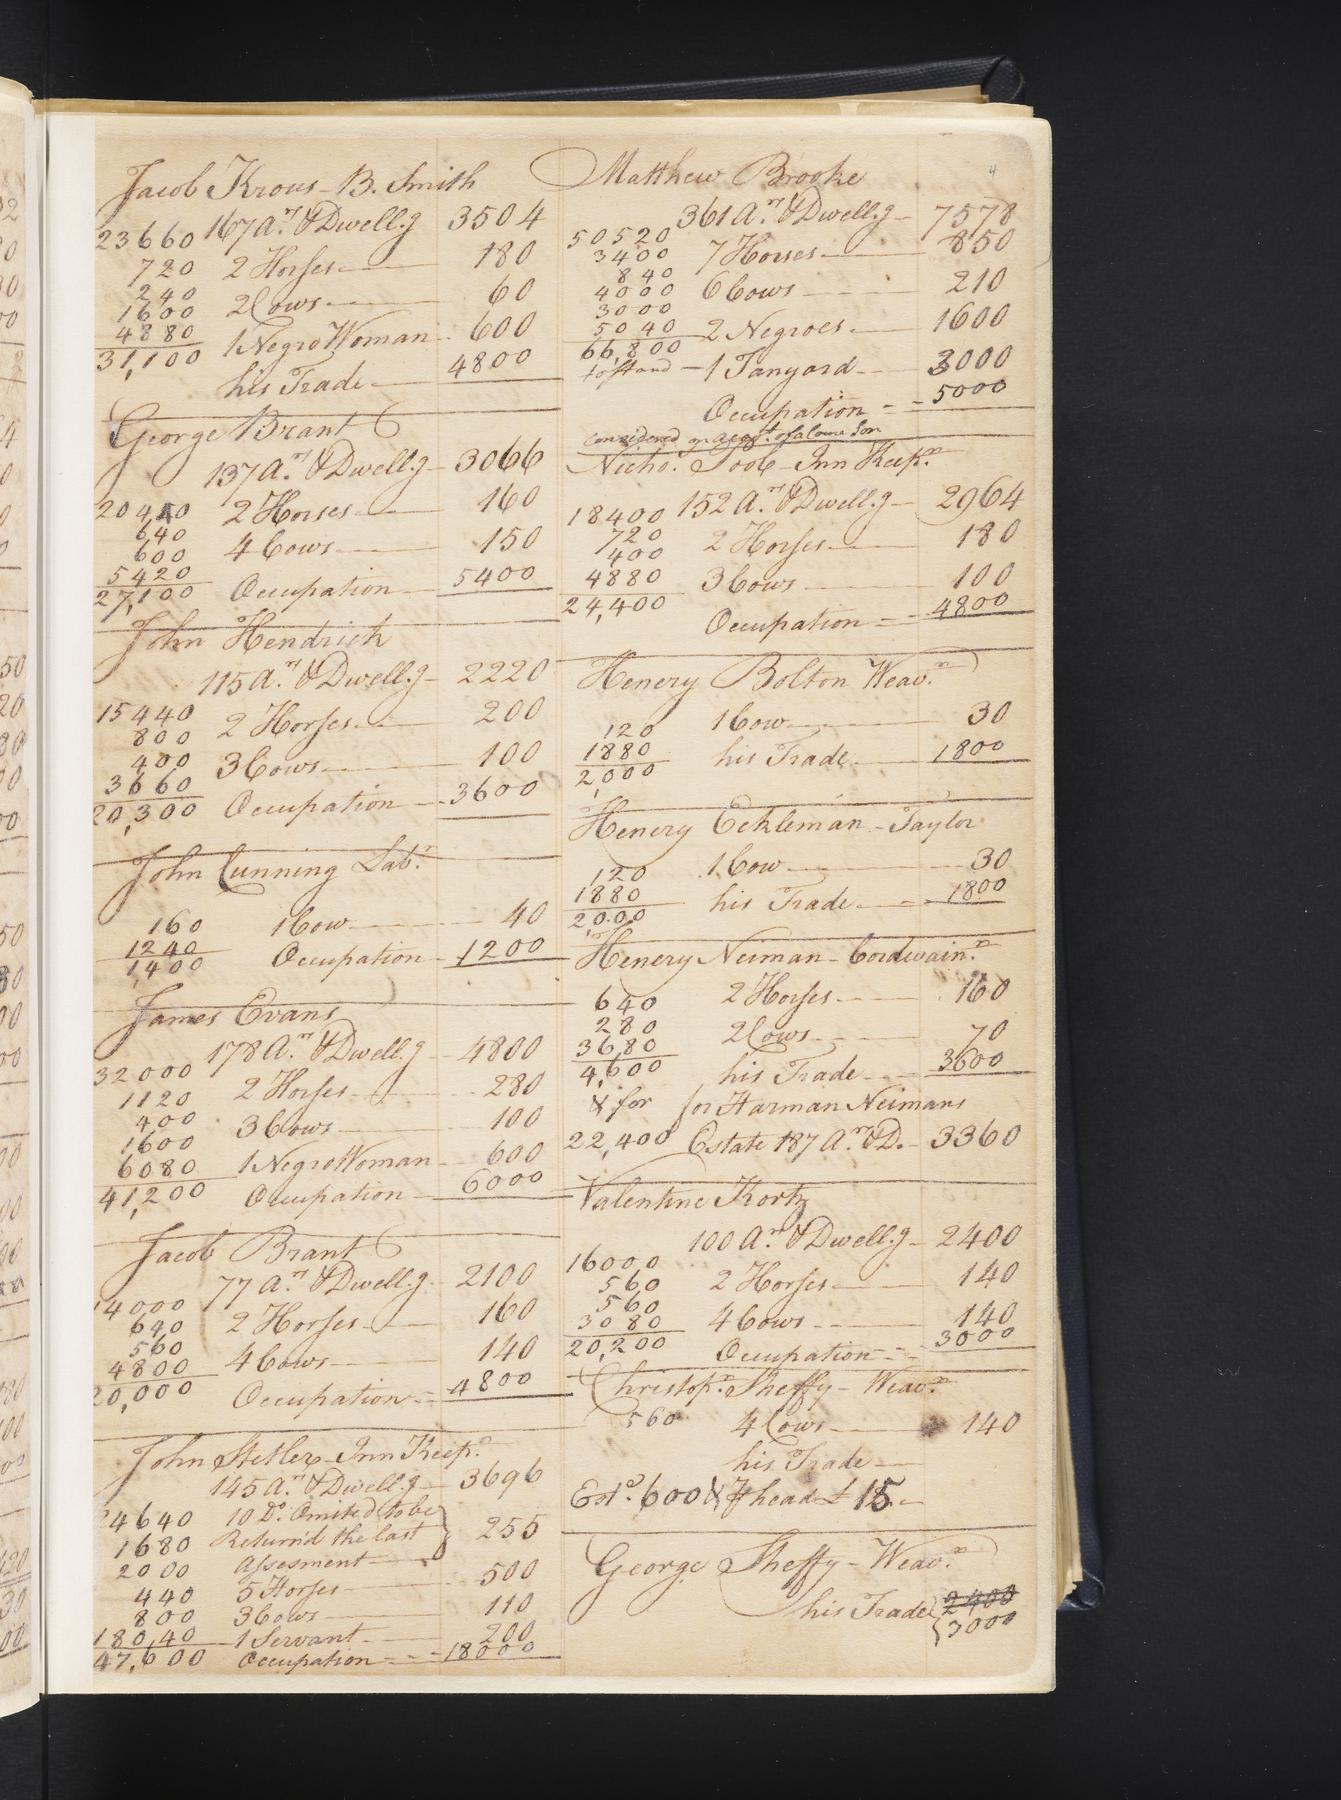 Jacob Krous - B. Smith
23660 167 A.rs & Dwell.g 3504
720 2 Horses 180
240
1600 2 Cows 60
4880 1 Negro Woman 600
31,100 his Trade 4800
George Brant
137 A.rs & Dwell.g 3066
20440 2 Horses 160
640
600 4 Cows 150
5420
27,100 Occupation 5400
John Hendrich
115 A.rs & Dwell.g 2220
15440 2 Horses 200
800
400 3 Cows 100
3660
20,300 Occupation 3600
John Cunning Lab.r
160 1 Cow 40
1240
1,400 Occupation 1200
James Evans
178 A.rs & Dwell.g 4800
32000
1120 2 Horses 280
400 3 Cows 100
1600
6080 1 Negro Woman 600
41,200 Occupation 6000
Jacob Brant
77 A.rs & Dwell.g 2100
14000
640 2 Horses 160
560
4800 4 Cows 140
20,000 Occupation 4800
John Stetler - Inn Keep.r
145 A.rs & Dwell.g 3696
24640 10 D.o Omited to be
1680 Return'd the last 255
2000 Assesment
440 5 Horses 500
800 3 Cows 110
180,40 1 Servant 200
47,600 Occupation 18000
4
Matthew Brooke
361 A.rs & Dwell.g 7578
50520
3400 7 Horses 850
840
4000 6 Cows 210
3000
5040 2 Negroes 1600
66,800
to stand 1 Tanyard 3000
Occupation 5000
considered on acct. of a lame Son
Nicho. Poob - Inn Keep.r
18400 152 A.rs & Dwell.g 2964
720
400 2 Horses 180
4880 3 Cows 100
24,400 Occupation 4800
Henery Bolton Weav.r
120 1 Cow 30
1880 his Trade 1800
2,000
Henery Eckleman - Taylor
120 1 Cow 30
1880 his Trade 1800
2,000
Henery Neiman - Cordwain.r
640 2 Horses 160
280 2 Cows 70
3680
4,600 his Trade 3600
& for for Harman Neimans
22,400 Estate 187 A.rs & D. 3360
Valentine Kortz
100 A.rs & Dwell.g 2400
16000
560 2 Horses 140
560
3080 4 Cows 140
20,200 Occupation 3000
Christop.r Sheffy - Weav.r
560 4 Cows 140
his Trade
Est.d 600 & head £ 15
George Sheffy - Weav.r
his Trade 2400
3000